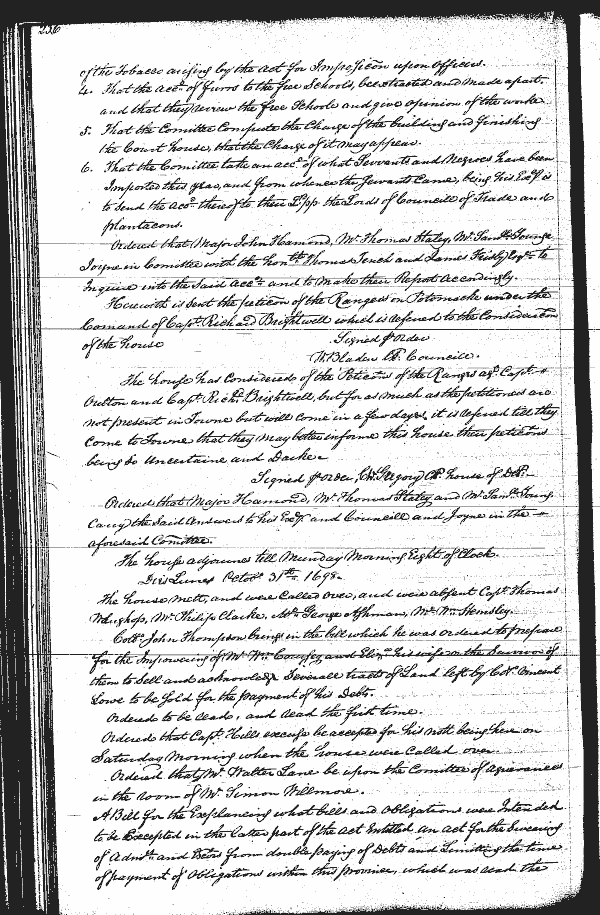 236
of the Tobacco arising by the act for Imposicon upon Officers.
4. That the accts. of Furrs to the free Schools, be extracted and made apart,
and that they review the free Schoole and give opinion of the worke
5. That the Comittee Compute the Charge of the building and finishing
the Court house, that the Charge of it may appear.
6. That the Comittee take an acco. of what Servants and Negroes have been
Imported this year, and from whence the Servants Came, being his Exy. is
to send the acco. thereof to their Lspps the Lords of Councill of Trade and
plantacons.
Ordered that Major John Hamond, Mr. Thomas Staley, Mr. Saml. Younge
Joyne in Comittee with the honble. Thomas Tench and James Frisby Esqrs. to
Inquire into the Said accts. and to make their Report accordingly.
Herewith is sent the peticon of the Rangers on Potomacke under the
Comand of Capt. Richard Brightwell which is referred to the Consideracon
of the house
Signed p order
W. Bladen Cl. Councill.
The house has Considered of the Peticons of the Rangers as. Capt.
Oulton and Capt. Richd. Brightwell, but for as much as the petitioners are
not present in Towne but will come in a few dayes, it is referred till they
Come to Towne that they may better informe this house their peticons
being so Uncertaine and Darke
Signed p order Ch. Gregory Cl. house of Del.
Ordered that Major Hamond, Mr. Thomas Staley and Mr. Saml. Young
Carry the said Answers to his Exy. and Councill and Joyne in the
aforesaid Comittee.
The house adjournes till Munday Morning Eight of Clock.
Dies Lunes Octobr. 31st. 1698.
The house mett, and were Called over, and were absent Capt. Thomas
Waughop, Mr. Philip Clarke, Mr. George Ashman, Mr. Wm. Hemsley.
Coll. John Thompson brings in the bill which he was ordered to prepare
for the Impowering of Mr. Wm. and Eliz. his wife or the Survivor of
them to Sell and acknowledge Severall tracts of Land left by Col. Vincent
Lowe to be Sold for the payment of his Debts.
Ordered to be read, and read the first time.
Ordered that Capt. Hills excuse be accepted for his not being here on
Saturday Morning when the house were Called over.
Ordered that Mr. Walter Lane be upon the Comittee of Agrievances
in the room of Mr. Simon Willmore.
A Bill for the Explancing what bills and Obligations were Intended
to be Excepted in the latter part of the act Entitled an act for the Secureing
of Admrs. and Exctrs from double paying of Debts and Limitting the time
of payment of Obligations within this province, which was read the